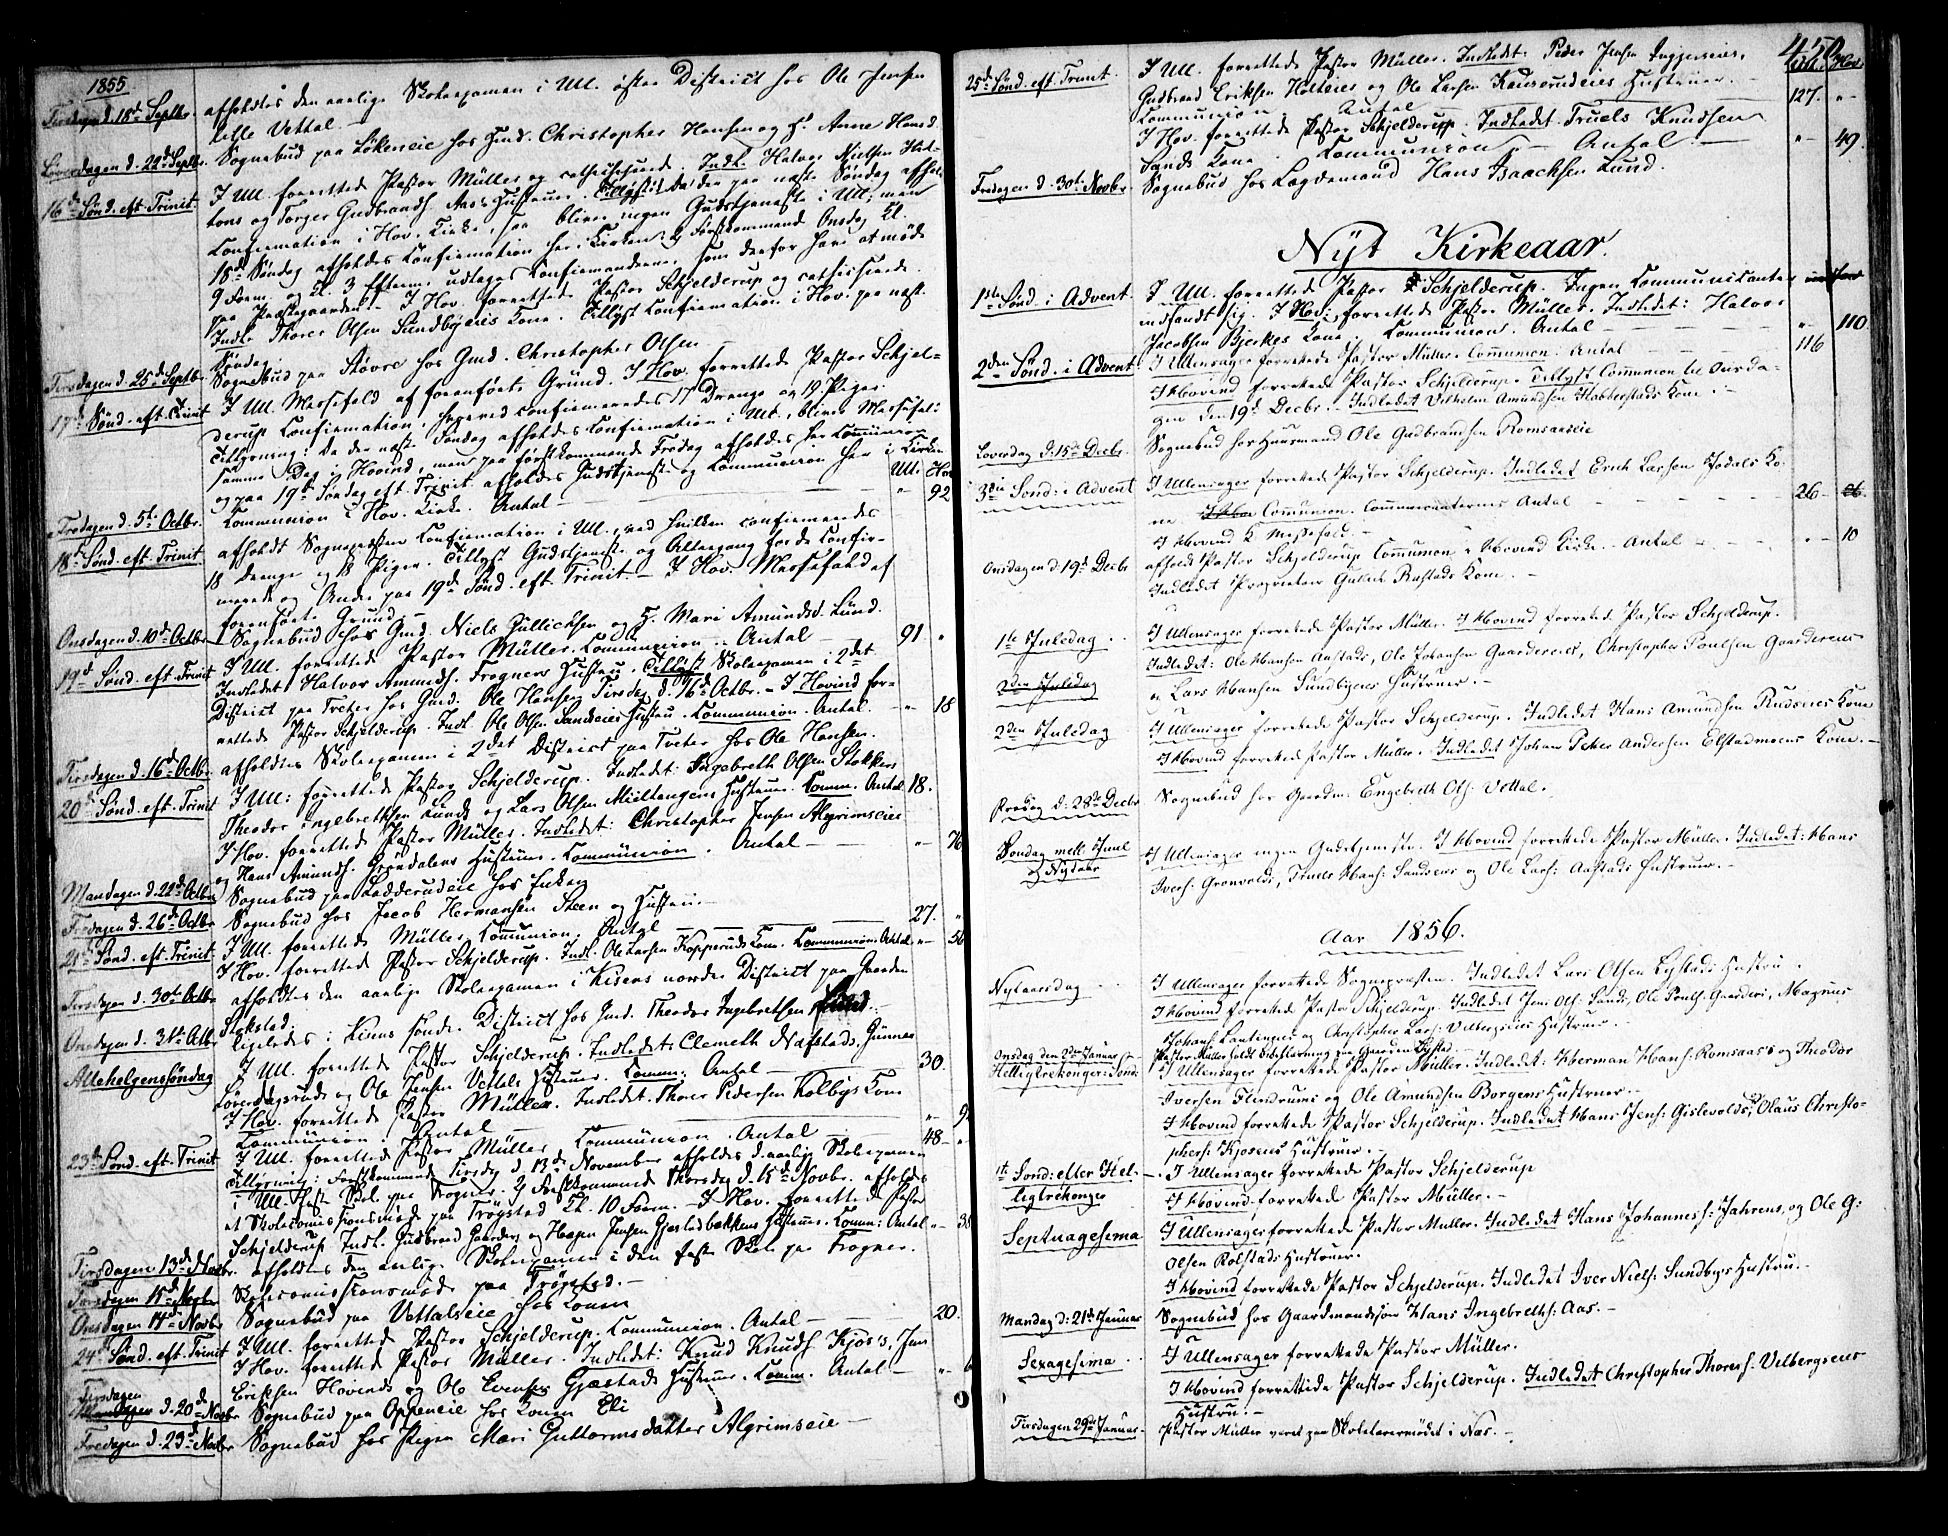 1855
Tirsdagen d. 18de Septbr. afholdtes den aarlige Skoleexamen i Ull. østre District hos Ole Jensen
lille Vettal
Løverdagen d. 22de Septbr. Sognebud paa Løkeneie hos Hmd. Christopher Hansen og H. Anne Hansd.
16de Sønd. eft. Trinit. I Ull. forrettede Pastor Müller og catechiserede. Indl. Halvor Nielsen
og Torger Gudbrandh. Aas's Hustruer. Tillyst: Da der paa næste Søndag afholdes
Confirmation i Hov. Kirke, saa bliver ingen Gudstjeneste i Ull, men
18de Søndag afholdes Confirmation her i Kirken. Førstkommende Onsdag Kl.
9 Form. og Kl. 3 Efterm. udtages Confirmanderne, som derfor have at møde
paa Præstegaarden. I Hov. forrettede Pastor Schjelderup og catechiserede.
Indl. Thorer Olsen Sundbyeies Kone. Tillyst Confirmation i Hov. paa næst
Søndag.
Tirsdagen d. 25de Septbr. Sognebud paa Støvre hos Gmd. Christopher Olsen
17de Sønd. eft. Trinit. I Ull. Messefald af foranførte Grund. I Hov. forrettede Pastor Schjel-
derup Confirmation, hvorved confirmeredes 17 Drenge og 19 Piger.
Tillysning: Da der næste Søndag afholdes Confirmation i Ull., bliver Messefal:
samme Dag i Hovind, men paa førstkommende Fredag afholdes her Communion
og paa 19de Søndag eft. Trinit. afholdes Gudstjeneste og Communion her i Kirken
Ull. Hov.
Fredagen d. 5te Octbr. Communion i Hov. Kirke. Antal " 92
18de Sønd. eft. Trinit. afholdt Sognepræsten Confirmation i Ull., ved hvilken confirmeredes
18 Drenge og 18 Piger. Tillyst Gudstjeneste og Altergang for de Confir-
merede og Andre paa 19de Sønd. eft. Trinit. I Hov. Messefald af
foranførte Grund.
Onsdagen d. 10de Octbr. Sognebud hos Gmd. Niels Gullichsen og H. Mari Amundsd. Lund.
19de Sønd. eft. Trinit. I Ull. forrettede Pastor Müller. Communion. Antal 91 "
Indledet Halvor Amundh. Frogners Hustru. Tillyst Skoleexamen i 2det
District paa Tveter hos Gmd. Ole Hansen Tirsdag d. 16de Octbr. - I Hovind for-
rettede Pastor Schjelderup. Indl. Ole Olsen Sandseies Hustru. Communion. Antal. " 18
Tirsdagen d. 16de Octbr. afholdtes Skoleexamen i 2det District paa Tveter hos Ole Hansen.
20de Sønd. eft. Trinit. I Ull: forrettede Pastor Schjelderup. Indledet: Ingebreth Olsen Stokkers
Theodor Ingebrethsen Lunds og Lars Olsen Mieltangens Hustruer. Comm. Antal 18.
I Hov. forrettede Pastor Müller. Indledet: Christopher Jensen Algrimseies
og Hans Amundh. Grøndalens Hustruer. Communion. Antal " 76
Mandagen d. 22de Octbr. Sognebud paa Ladderudeie hos Enken
Fredagen d. 26de Octbr. Sognebud hos Jacob Hermansen Steen og Hustru.
21de Sønd. eft. Trinit. I Ull. forrettede Müller. Communion. Antal 27. "
I Hov. forrettede Pastor Schjelderup. Indl. Ole Larsen Kopperuds Kone. Communion. Antal " 56
Tirsdagen d. 30te Octbr. afholdtes den aarlige Skoleexamen i Kisens nordre District paa Gaarden
Stokstad.
Onsdagen d. 31te Octbr. ligeledes i Kisens søndr. District hos Gmd. Theodor Ingebrethsen
Allehelgenssøndag I Ull. forrettede Pastor Schjelderup. Indledet: Clemeth Nafstads, Gunner
Løverdagsruds og Ole Jensen Vettals Hustruer. Comm. Antal 30.
I Hov. forrettede Pastor Müller. Indledet: Thorer Pedersen Kolbys Kone
Communion. Antal " 9
23de Sønd. eft. Trinit. I Ull. forrettede Pastor Müller. Communion. Antal 48 "
Tillysning: Førstkommende Tirsdag d. 13de November afholdes d. aarlige Skoleexamen
i Ull. faste Skole paa Frogner. 2) Førstkommende Thorsdag d. 15de Novbr. afholdes
et Skolecommissionsmøde paa Trøgstad Kl. 10 Form. - I Hov. forrettede Pastor
Schjelderup. Indl. Gudbrand Gaarders og Haagen Jensen Gjestadbakkens Hustruer. Comm: Antal " 38
Tirsdagen 13de Novbr. afholdtes den aarlige Skoleexamen i den faste Skole paa Frogner.
Torsdagen 15de Novbr. Skolecommissionsmøde paa Trøgstad.
Onsdagen 14de Novbr. Sognebud paa Vettalseie hos Konen
24de Sønd. eft. Trinit I Ull. forrettede Pastor Schjelderup. Communion. Antal 20.
I Hov. forrettede Pastor Müller. Indledet: Knud Knudh. Kjos's, Jens
Eriksen Hovinds og Ole Evensen Gjæstads Hustruer. Comm. Antal " 6
Tirsdagen
d. 20de Novbr Sognebud paa Oppeneie hos Konen Eli
Fredagen d. 23de Novbr Sognebud hos Pigen Mari Guttormsdatter Algrimseie
450
Ull. Hov.
25de Sønd. eft. Trinit. I Ull. forrettede Pastor Müller. Indledet: Peder Jensen
Gudbrand Eriksen Holteies og Ole Larsen Kauserudeies Hustruer.
Communion Antal 127. "
I Hov. forrettede Pastor Schjelderup. Indledet: Truels Knudsen
Sands Kone. Communion Antal " 49.
Fredagen d. 30te Novbr. Sognebud hos Lægdemand Hans Isaachsen Lund.
Nyt Kirkeaar.
1ste Sønd. i Advent I Ull. forrettede Pastor Schjelderup. Ingen Communicanter
indfandt sig. I Hov: forrettede Pastor Müller. Indledet: Halvor
Jacobsen Bjerkes Kone. Communion. Antal " 110
2den Sønd. i Advent I Ullensager forrettede Pastor Müller. Communion. Antal 116
I Hovind forrettede Pastor Schjelderup. Tillyst Communion til Onsda-
gen den 19de Decbr. Indledet Vilhelm Amundsen Habbestads Kone.
Løverdag d: 15de Decbr. Sognebud hos Huusmand Ole Gudbrandsen Romsaaseie
3die Sønd: i Advent I Ullensager forrettede Pastor Schjelderup. Indledet Erich Larsen Jødals Ko-
ne. Communion. Communicanternes Antal 26
I Hovind K. Messefald.
Onsdagen d: 19de Decbr afholdt Pastor Schjelderup Communion i Hovind Kirke. Antal " 10
Indledet Proprietair Gulich Ræstads Kone.
1te Juledag I Ullensager forrettede Pastor Müller. I Hovind forrettede Pastor Schjelderup.
Indledet: Ole Hansen Aastads, Ole Johansen Gaardereies, Christopher Poulsen Gaardereies
2den Juledag
og Lars Hansen Sundbyeies Hustruer.
2den Juledag I Ullensager forrettede Pastor Schjelderup. Indledet Hans Amundsen Rudseies Kone
I Hovind forrettede Pastor Müller. Indledet Johan Peter Andersen Elstadmoens Kone.
Fredag d: 28de Decbr Sognebud hos Gaardm. Engebreth Ols: Vettal.
Søndag mell. Juul og Nytaar I Ullensager ingen Gudstjeneste. I Hovind forrettede Pastor Müller. Indledet: Hans
Ivers: Grønvolds, Truels Hans: Sandseies og Ole Lars: Aastads Hustruer.
Aar 1856.
Nytaarsdag I Ullensager forrettede Sognepræsten. Indledet Lars Olsen Lystads Hustru.
I Hovind forrettede Pastor Schjelderup. Indledet Jens Ols: Sands, Ole Pouls: Gaarders, Magnus
Johans: Lautinger og Christopher Lars: Velbergseies Hustruer.
Onsdag den 2den Januar Pastor Müller holdt Schiftarning paa Gaarden Lystad.
Helligtrekonger: Sønd: I Ullensager forrettede Pastor Müller. Indledet: Herman Hans: Romsaas's og Theodor
Iversen Flindrums og Ole Amundsen Borgens Hustruer.
I Hovind forrettede Pastor Schjelderup. Indledet Hans Jens: Gislevolds, Olaus Christo-
phers: Kjoseies Hustruer.
1te Sønd: efter Hel- I Ullensager forrettede Pastor Schjelderup
ligtrekonger I Hovind forrettede Pastor Müller.
Septuagesima I Ullensager forrettede Pastor Müller. Indledet Hans Johanness: Jahrens, og Ole G:
Olsen Rolstads Hustruer.
I Hovind forrettede Pastor Schjelderup. Indledet Iver Niels: Sundbys Hustru.
Mandag d: 21de Januar Sognebud hos Gaardmandsøn Hans Ingebreths: Aas.
Sexagesima I Ullensager forrettede Pastor Müller.
I Hovind forrettede Pastor Schjelderup. Indledet Christopher Thores: Velbergseies
Hustru.
Tirsdagen 29de Januar Pastor Müller været paa Skolelærermødet i Næs.